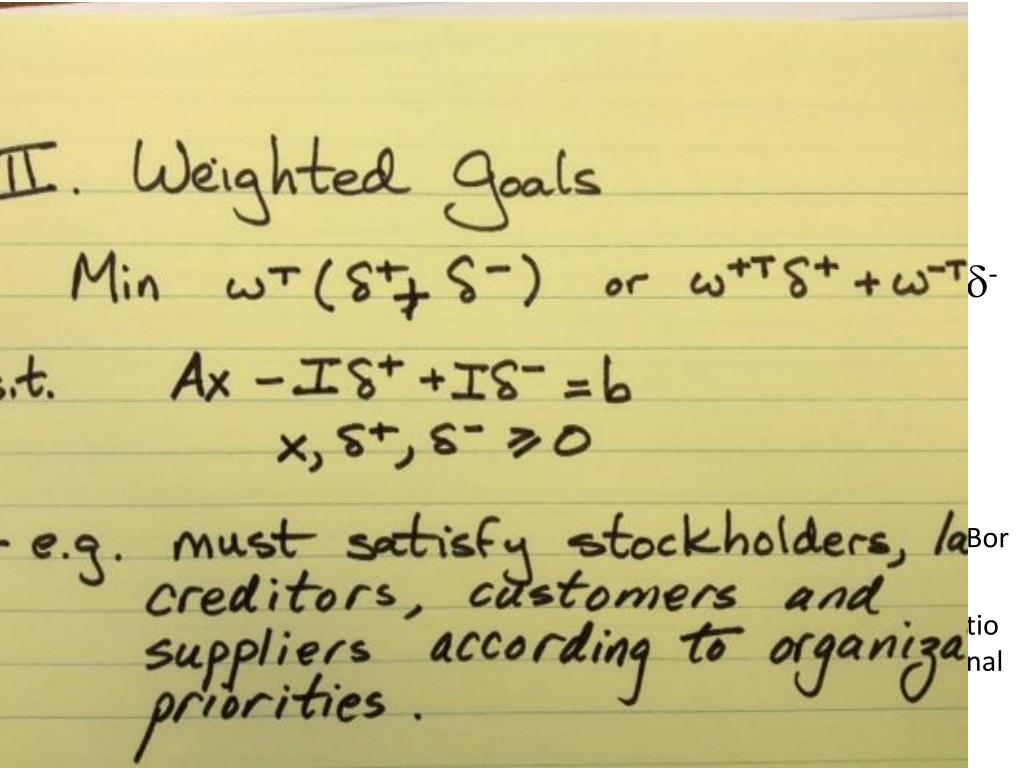 II. Weighted Goals
Min ωᵀ(δ⁺ + δ⁻) or ω⁺ᵀδ⁺ + ω⁻ᵀδ⁻
s.t. Ax - Iδ⁺ + Iδ⁻ = b
x, δ⁺, δ⁻ ≥ 0
- e.g. must satisfy stockholders, laBor
creditors, customers and
suppliers according to organizational
priorities.